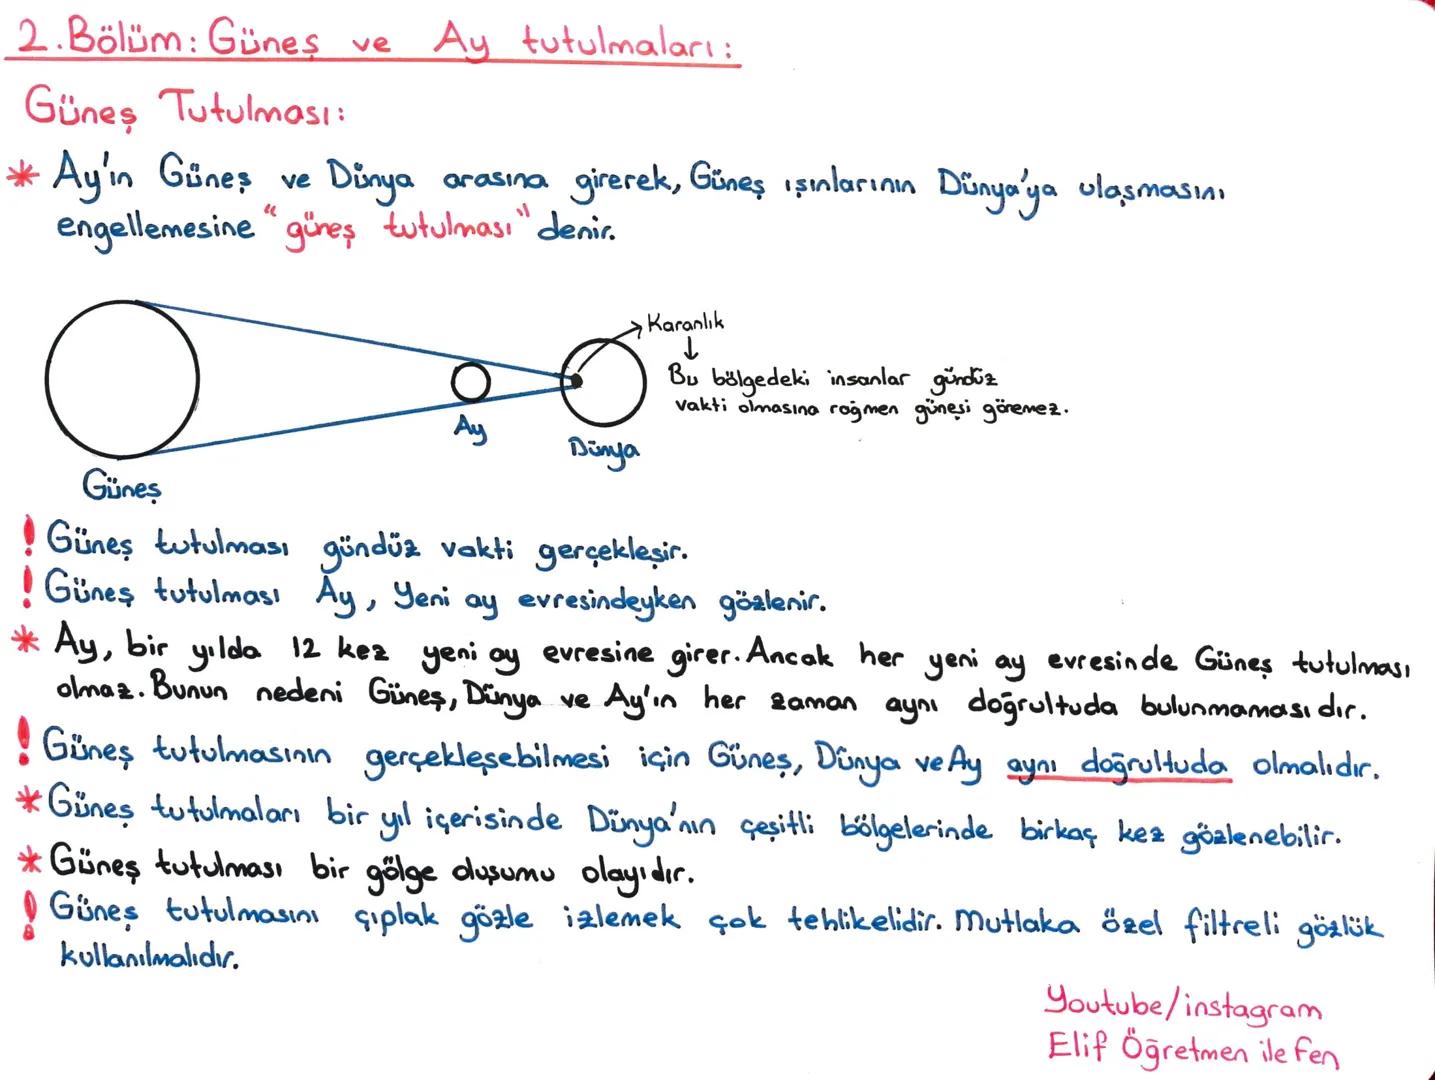 2.Bölüm: Güneş ve Ay tutulmaları:
Güneş Tutulması:
* Ay'ın Güneş ve Dünya arasına girerek, Güneş ışınlarının Dünya'ya ulaşmasını
engellemesine "güneş tutulması" denir.
Karanlık
Bu bölgedeki insanlar gündüz
vakti olmasına rağmen güneşi göremez.
Ay
Dünya
Güneş
! Güneş tutulması gündüz vakti gerçekleşir.
! Güneş tutulması Ay, Yeni ay evresindeyken gözlenir.
* Ay, bir yılda 12 kez yeni ay evresine girer. Ancak her yeni ay evresinde Güneş tutulması
olmaz. Bunun nedeni Güneş, Dünya ve Ay'ın her zaman aynı doğrultuda bulunmamasıdır.
! Güneş tutulmasının gerçekleşebilmesi için Güneş, Dünya ve Ay aynı doğrultuda olmalıdır.
* Güneş tutulmaları bir yıl içerisinde Dünya'nın çeşitli bölgelerinde birkaç kez gözlenebilir.
* Güneş tutulması bir gölge oluşumu olayıdır.
! Güneş tutulmasını çıplak gözle izlemek çok tehlikelidir. Mutlaka özel filtreli gözlük
kullanılmalıdır.
Youtube/instagram
Elif Öğretmen ile Fen